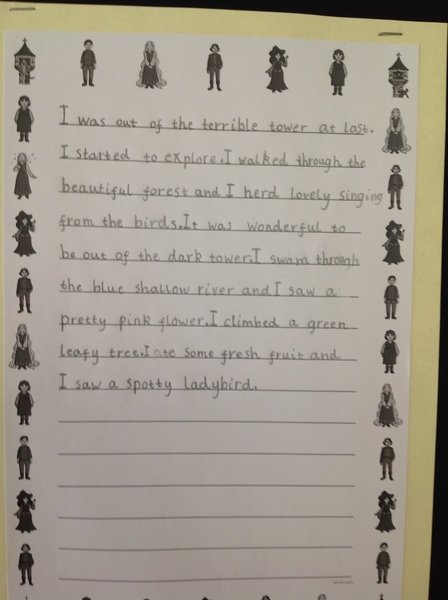 I was out of the terrible tower at last.
I started to explore.I walked through the
beautiful forest and I herd lovely singing
from the birds.It was wonderful to
be out of the dark tower.I swam through
the blue shallow river and I saw a
pretty pink flower.I climbed a green
leafy tree.I ate some fresh fruit and
I saw a spotty ladybird.